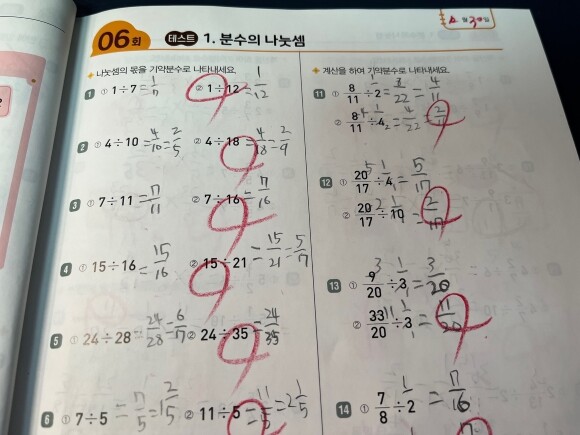 06회 테스트 1. 분수의 나눗셈
월 3일
나눗셈의 몫을 기약분수로 나타내세요.
1 ① 1÷7=1/7 ② 1÷12=1/12
2 ① 4÷10=4/10=2/5 ② 4÷18=4/18=2/9
3 ① 7÷11=7/11 ② 7÷16=7/16
4 ① 15÷16=15/16 ② 15÷21=15/21=5/7
5 ① 24÷28=24/28=6/7 ② 24÷35=24/35
6 ① 7÷5=7/5=1 2/5 ② 11÷5=11/5=2 1/5
계산을 하여 기약분수로 나타내세요.
11 ① 8/11÷2=8/22=4/11
② 8/11÷4=4/22=2/11
12 ① 20/17÷4=5/17
② 20/17÷10=2/17
13 ① 9/20÷3=3/20
② 33/20÷3=11/20
14 ① 7/8÷2=7/16